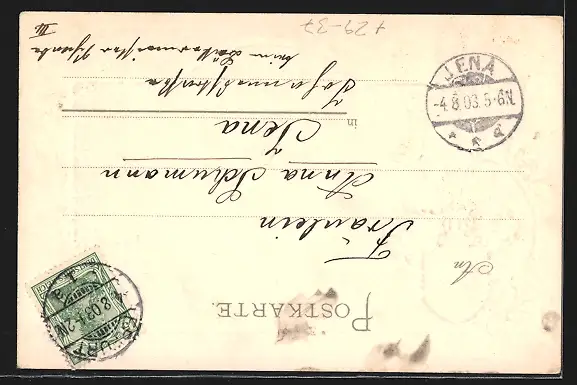 POSTKARTE.
An
Fräulein
Anna Schumann
in Jena
Johannisstrasse
beim
III
JENA
-4.8.03.5-6N.
* * a
+29-37